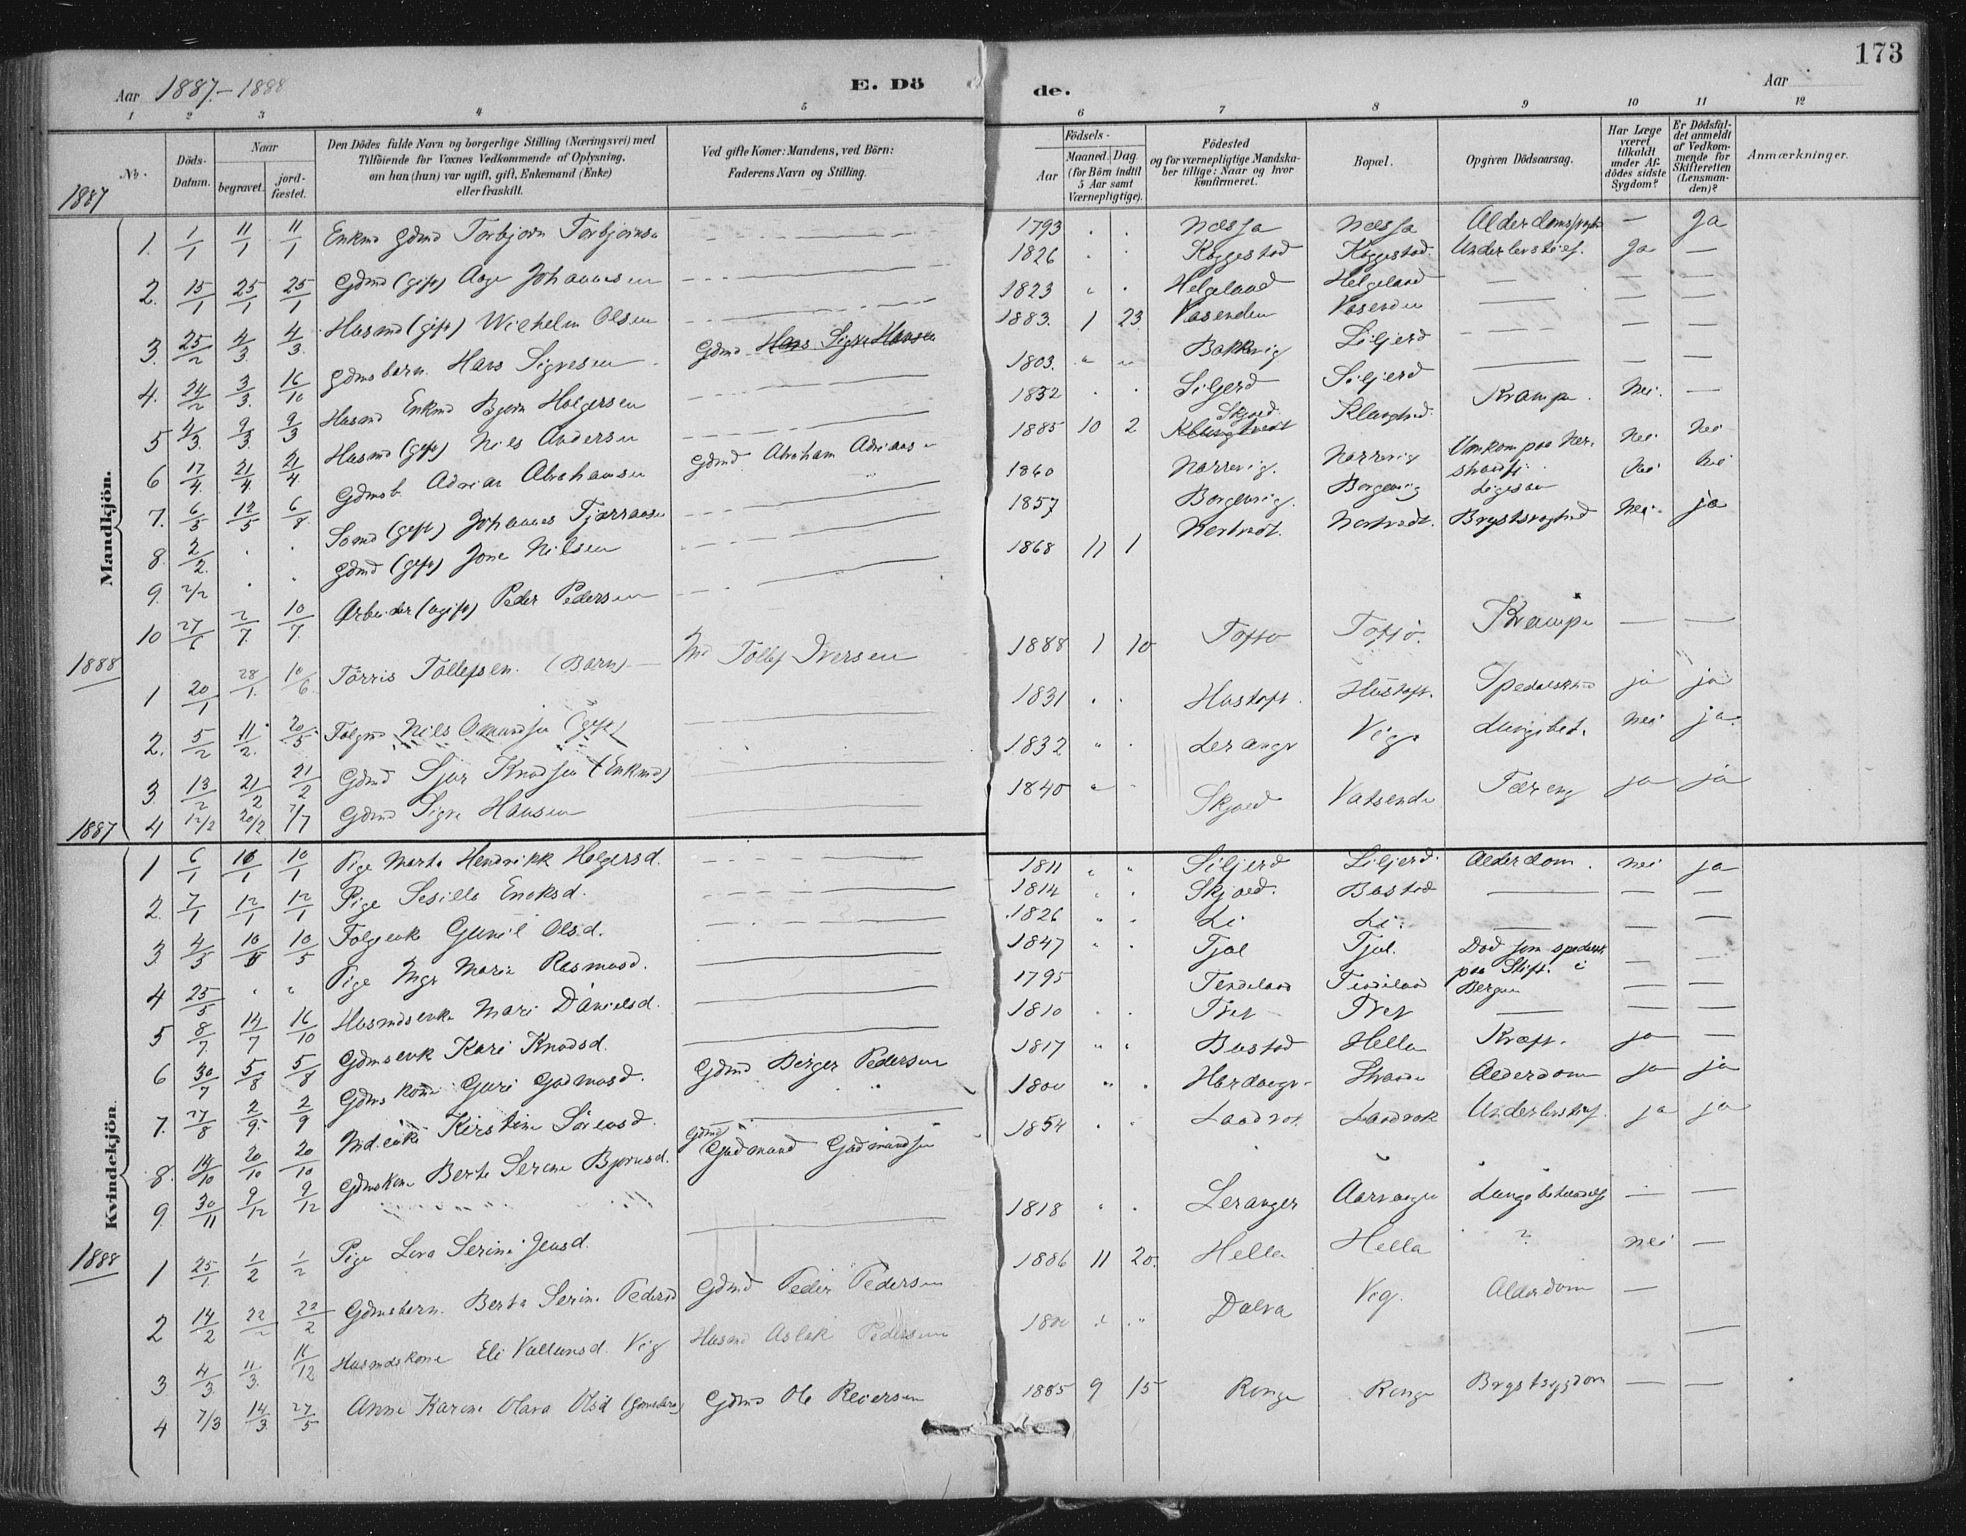 173
Aar 1887-1888 E. Dö de. Aar
1 2 3 4 5 6 7 8 9 10 11 12
No. Döds-Datum. Naar begravet. jordfæstet. Den Dödes fulde Navn og borgerlige Stilling (Næringsvei) med Tilföiende for Voxnes Vedkommende af Oplysning, om han (hun) var ugift, gift, Enkemand (Enke) eller fraskilt. Ved gifte Koner: Mandens, ved Börn: Faderens Navn og Stilling. Födsels- Aar Maaned. Dag (for Börn indtil 5 Aar samt Værnepligtige). Födested og for værnepligtige Mandskaber tillige: Naar og hvor konfirmeret. Bopæl. Opgiven Dödsaarsag. Har Læge været tilkaldt under Afdödes sidste Sygdom? Er Dödsfaldet anmeldt af Vedkommende for Skifteretten (Lensmanden)? Anmærkninger.
1887
Mandkjön.
1. 1/1 11/1 11/1 Enkmd Gdmd Torbjorn Torbjørnsen 1793 Næssa Næssa — Ja
2. 15/1 25/1 25/1 Gdmd (gift) Aage Johannesen 1826 Køggestad Køggestad Underlivsbróf. Ja —
3. 25/2 4/3. 4/3. Husmd (gift) Wilhelm Olsen 1823 Helgeland Helgeland — — —
4. 24/2 3/3. 16/10 Gdmsbarn Hans Sigvesen Gdmd Sigve Hansen 1883. 1 23 Vasenden Vasenden — —
5 4/3. 9/3. 9/3 Husmd Enkmd Bjørn Holgersen 1803. Bakkevig Siljerd — —
6 17/4. 21/4. 21/4 Husmd (gift) Nils Andersen 1832 Siljerd Siljerd — —
7. 6/5 12/5 6/8. Gdmsb. Adrian Abrahamsen Gdmd Abraham Adriansen 1885 10 2 Skjoed Klungtved Krampe. Nei. —
8. 2/2. Somd (gift) Johannes Tjærransen 1860 Narrevig. Narrevig Omkom paa Nei Nei
9. 2/2 Gdmd (gift) Jone Nilsen 1857 Borgenvig. Borgenvig Ligesaa Nei Nei
10 27/6 2/7. 10/7 Arbeider (ugift) Peder Pedersen 1868 11 1 Nertvedt. Nertvedt. Brystsvaghed Nei. ja
1888
1 20/1 28/1. 10/6. Tørris Tollefsen. (Barn) Tollef Iversen 1888 1 10 Toftø Toftø. Krampe — —
2. 5/2 11/2. 20/5 Folgmd Nils Osmundsen (gift) 1831 Hustoft. Hustoft. Spedalskhed ja ja
3. 13/2 21/2 21/2 Gdmd Sjur Knudsen (Enkmd) 1832 Leranger Vig Lungebet. nei ja.
4 12/2 20/2 7/7 Gdmd Sigve Hansen 1840 Skjoed Vatsende Tæreng ja ja
1887
Kvindekjön.
1 6/1 10/1 10/1 Pige Marta Hendrikk Holgersd. 1811 Siljerd Siljerd Alderdom. nei ja
2. 7/1 12/1 12/1 Pige Sesilla Enoksd. 1814 Skjoed. Bustad — — —
3. 4/5 10/5 10/5 Folgeenk Gunil Olsd. 1826 Li Li. — — —
4 25/5 Pige Ingr Maria Rasmusd. 1847 Tjul Tjul. Død som spedalsk paa Stift. i Bergen — —
5 8/7. 14/7 16/10 Husmdsenke Mari Danielsd. 1795 Tendeland Tendeland — —
6 30/7 5/8 5/8 Gdmsenk Kari Knudsd. 1810 Tvet Tvet — — —
7. 27/8 2/9. 2/9 Gdmskone Guri Gudmusd. Gdmd Berger Pedersen 1817 Bustad Hella Kræft. ja —
8. 14/10 20/10 20/10 Ind.enke Kirstine Sørensd. 1800 Hardanger Alderdom ja ja
9 30/11 9/12 9/12 Gdmskone Berte Serine Bjørnsd. Gdmd Gudmund Gudmundsen 1854 Landrok Landrok Underlivsbróf. ja ja
1888
1 25/1. 1/2 1/2 Pige Lava Serine Jensd. 1818 Leranger Aarvaagen Lungebetændelse — —
2 14/2 22/2 22/2 Gdmsbarn. Berta Serine Pedersd Gdmd Peder Pedersen 1886 11 20. Hella Hella ? nei —
3 4/3. 11/3. 11/12 Husmdskone Eli Valtunsd. Vig Husmd Aslak Pedersen 1800 Dalva Vig. Alderdom — —
4 7/3 14/3. 27/5 Anne Karine Olava Olsd (Gdmsbarn) Gdmd Ole Reiersen 1885 9 15 Ronge Ronge Brystsygdom — —